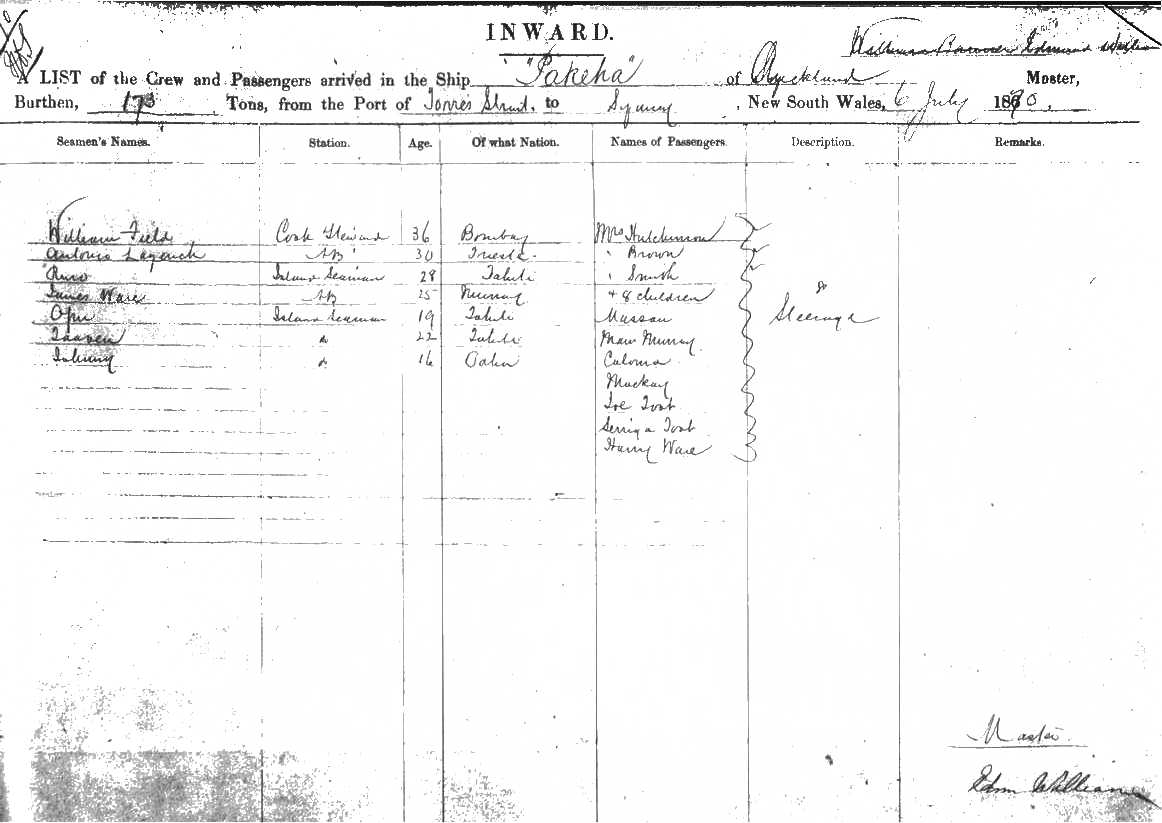 INWARD.
Edmund
A LIST of the Crew and Passengers arrived in the Ship "Pakeha" of Auckland Master,
Burthen, 173 Tons, from the Port of Torres Strait. to Sydney, New South Wales, 6 July 1870.
Seamen's Names. Station. Age. Of what Nation. Names of Passengers. Description. Remarks.
William Field Cook Steward 36 Bombay Mrs Hutchinson
Antonio AB 30 Trieste " Brown
Island Seaman 28 Tahiti " Smith
James Ware AB 25 Murray + 8 children
Opu Island Seaman 19 Tahiti Massau Steerage
22 Tahiti Maw Murray
Johnny 16 Oahu
Mackay
Joe Toot
Toot
Harry Ware
Master
Edm William